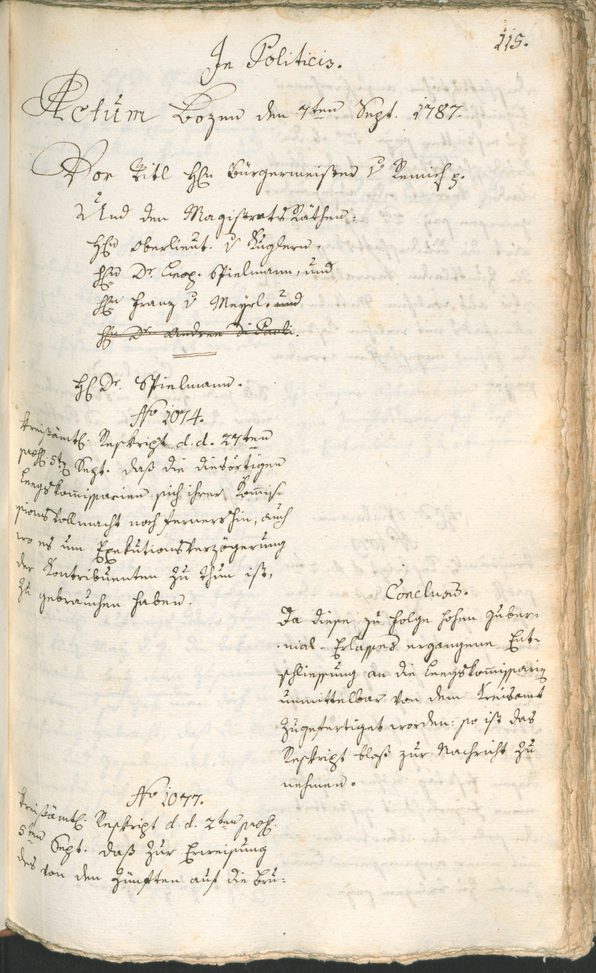 115.
In Politicis.
Actum Bozen den 7ten Sept. 1787.
Vor Titl Hn Bürgermeister v Remich p.
Und den Magistrats Räthen:
Hn Oberlieut. v Kuglern.
Hn Dr. Leop. Spielmann, und
Hn Franz v Mayrl. und
Hn Dr. Andree Di Pauli.
H Dr. Spielmann.
No 1074.
Kreisämtl. Reskript d. d. 27ten
Sept. daß die diesortigen
Leegskommissarien sich ihrer Kommis-
sionsvollmacht noch fernershin, auch
wo es um Exekutionsverzögerung
der Kontribuenten zu thun ist,
zu gebrauchen haben.
Conclusum.
Da diese zu Folge hohen Guber-
nial-Erlasses ergangene Ent-
schliessung an die Leegskommissarien
unmittelbar von dem Kreisamt
zugefertiget worden: so ist das
Reskript bloß zur Nachricht zu
nehmen.
No 1077.
Kreisämtl. Reskript d. d. 2ten
5ten Sept. daß zur Erweisung
des von den Zünften auf die Bru-